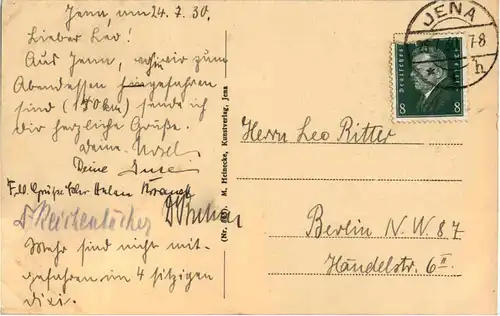 Jena, am 24.7.30.
Lieber Leo!
Aus Jenn, wir zum
Abendessen hingefahren
sind (170km) sende ich
dir herzliche Grüße.
Deine Ursel
Deine
Frdl. Grüße Ihr
Mehr sind nicht mit-
gefahren im 4 sitzigen
dixi.
(Nr. M. Heinecke, Kunstverlag, Jena
JENA
7-8
Deutsches Reich
8 8
Herrn Leo Ritter
Berlin N.W. 87
Händelstr. 6 II